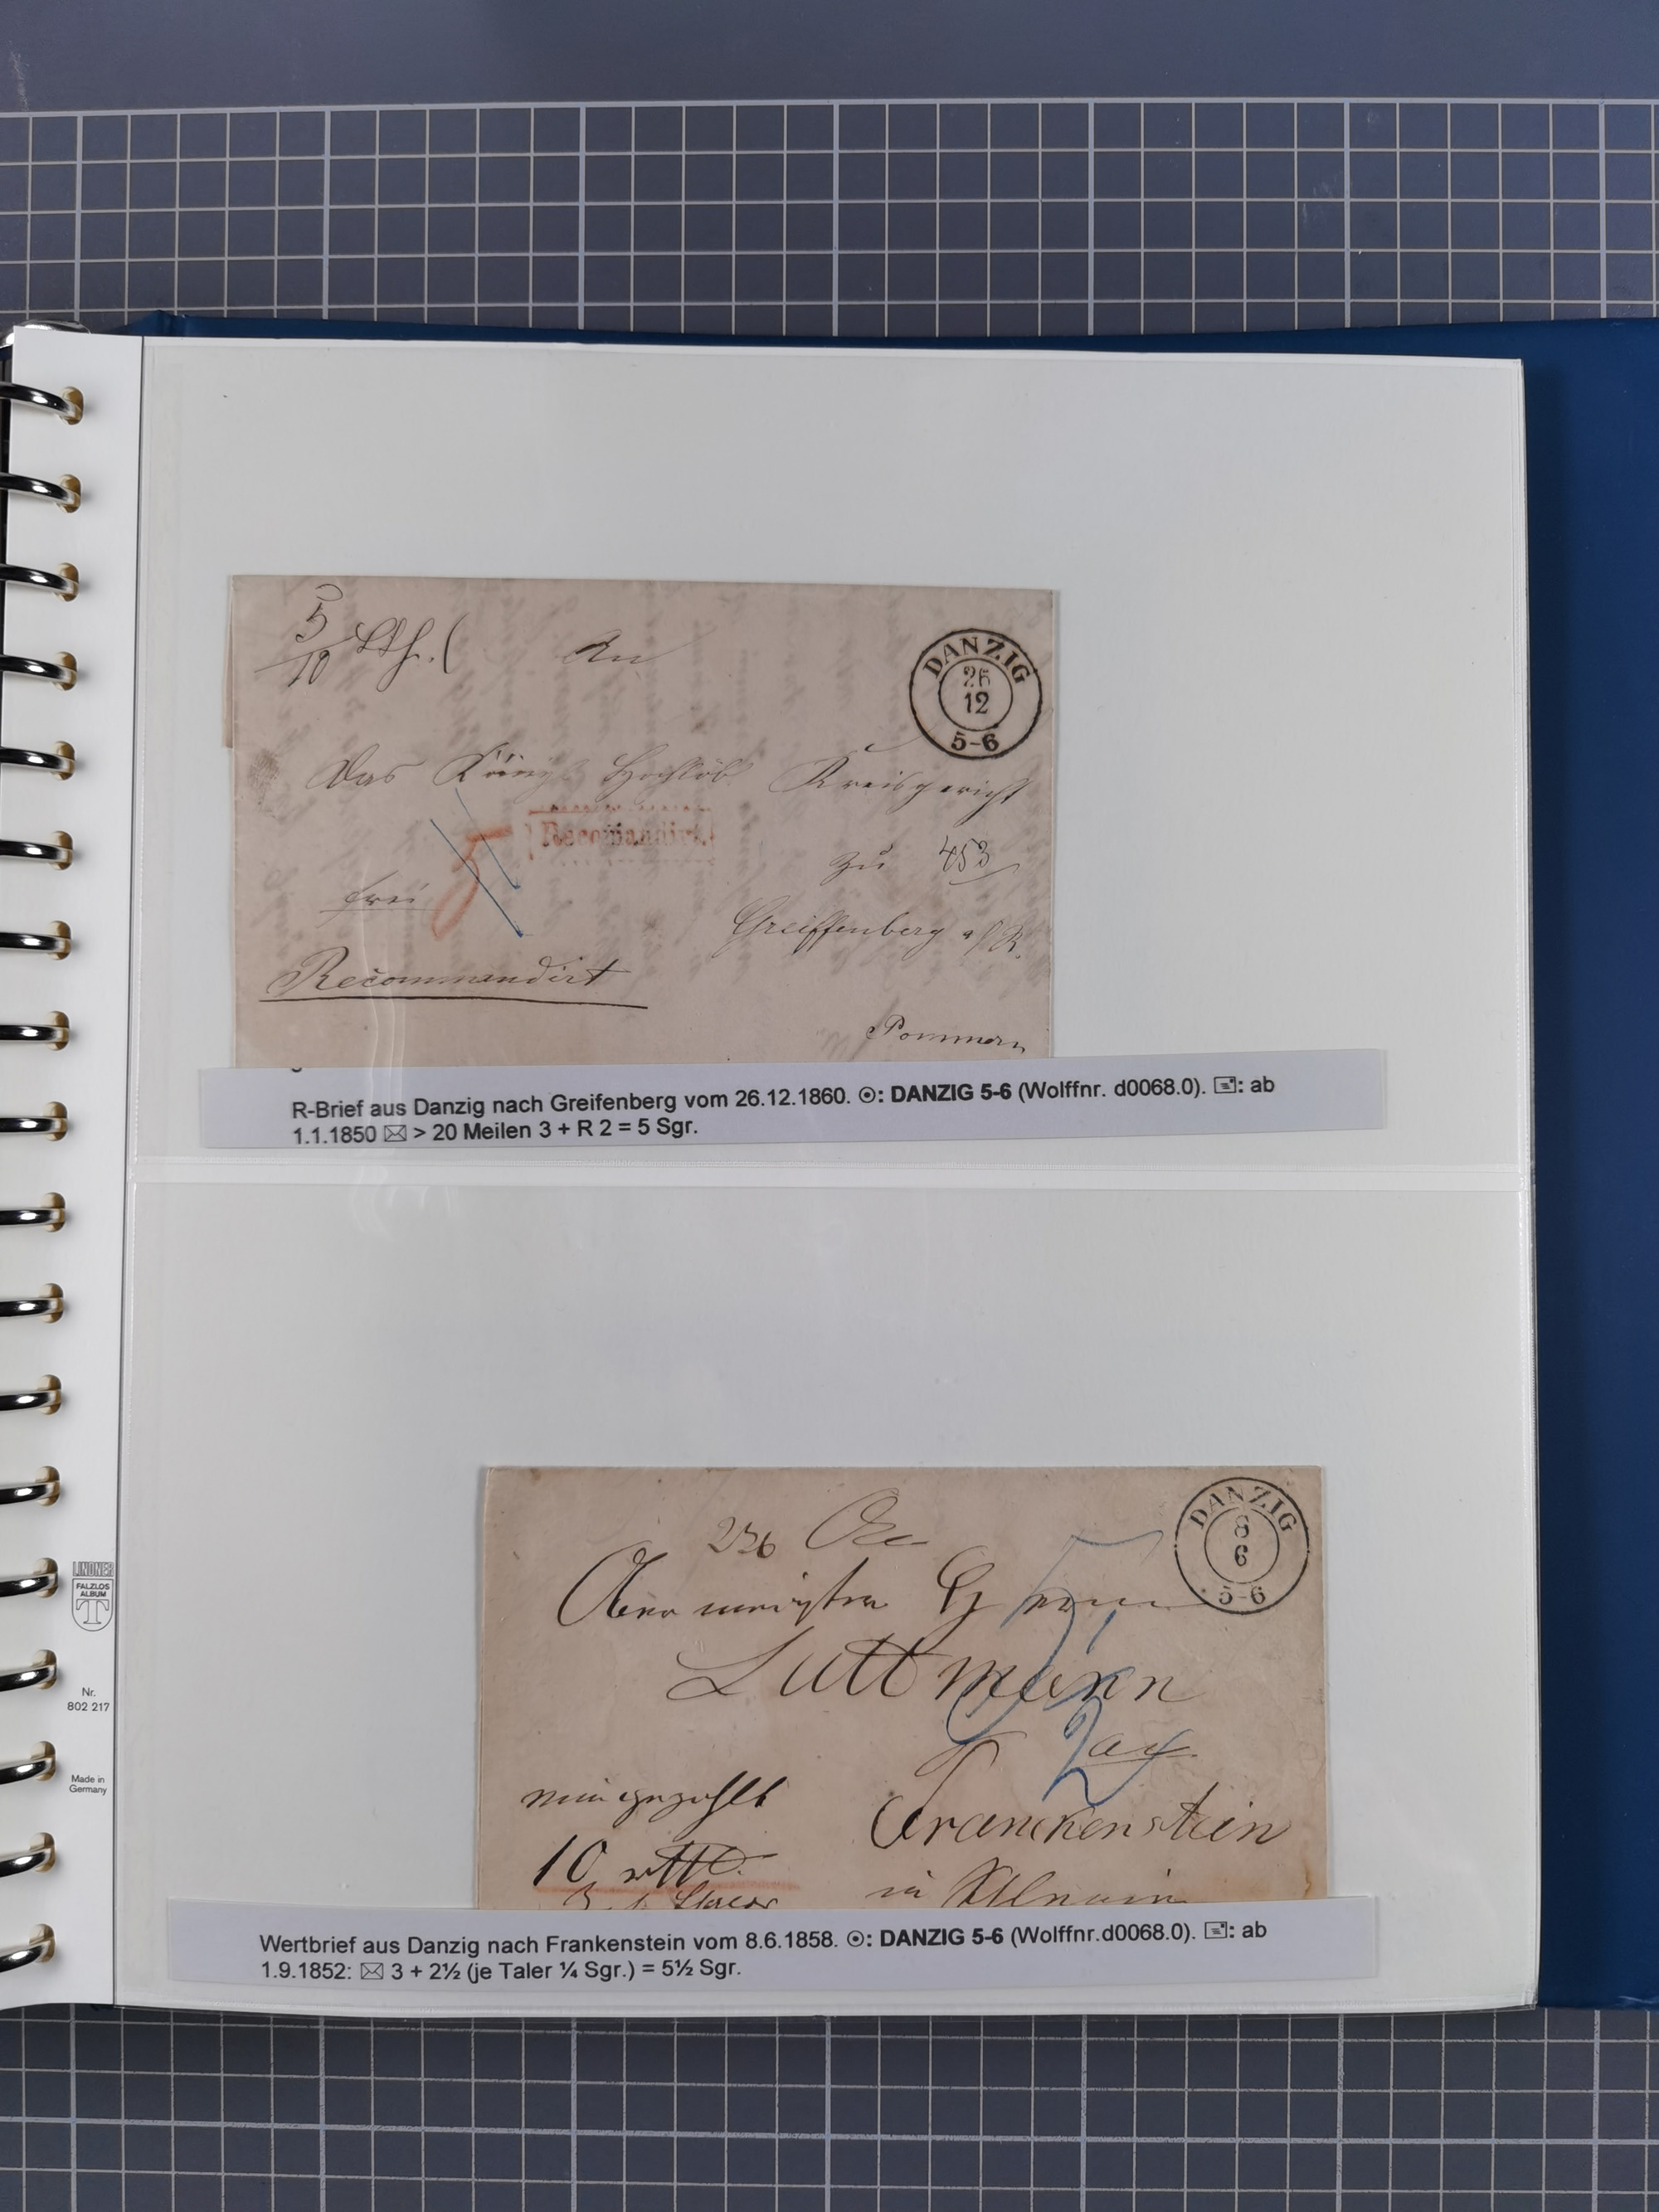 5/10 Lth.
An
DANZIG
26
12
5-6
Das Königl. Hochlöbl. Kreisgericht
Recomandirt.
5
zu 453
frei
Greiffenberg a/R.
Recommandirt
Pommern
R-Brief aus Danzig nach Greifenberg vom 26.12.1860. ☉: DANZIG 5-6 (Wolffnr. d0068.0). 🖃: ab
1.1.1850 ✉ > 20 Meilen 3 + R 2 = 5 Sgr.
DANZIG
8
6
5-6
Luttmann
Franckenstein
in
10
Wertbrief aus Danzig nach Frankenstein vom 8.6.1858. ☉: DANZIG 5-6 (Wolffnr.d0068.0). 🖃: ab
1.9.1852: ✉ 3 + 2½ (je Taler ¼ Sgr.) = 5½ Sgr.
LINDNER
FALZLOS
ALBUM
T
Nr.
802 217
Made in
Germany